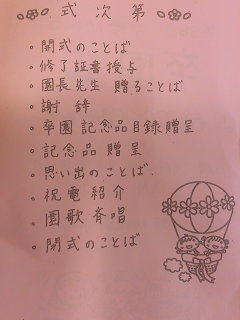 式次第
・開式のことば
・修了証書授与
・園長先生 贈ることば
・謝辞
・卒園記念品目録贈呈
・記念品 贈呈
・思い出のことば
・祝電紹介
・園歌斉唱
・閉式のことば